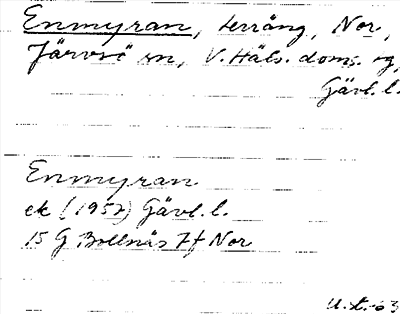 Enmyran, terräng, Nor,
Järvsö sn, V. Häls. doms. sg,
Gävl. l.
Enmyran
ek (1957) Gävl. l.
15 G Bollnäs 7f Nor
U.L. 63